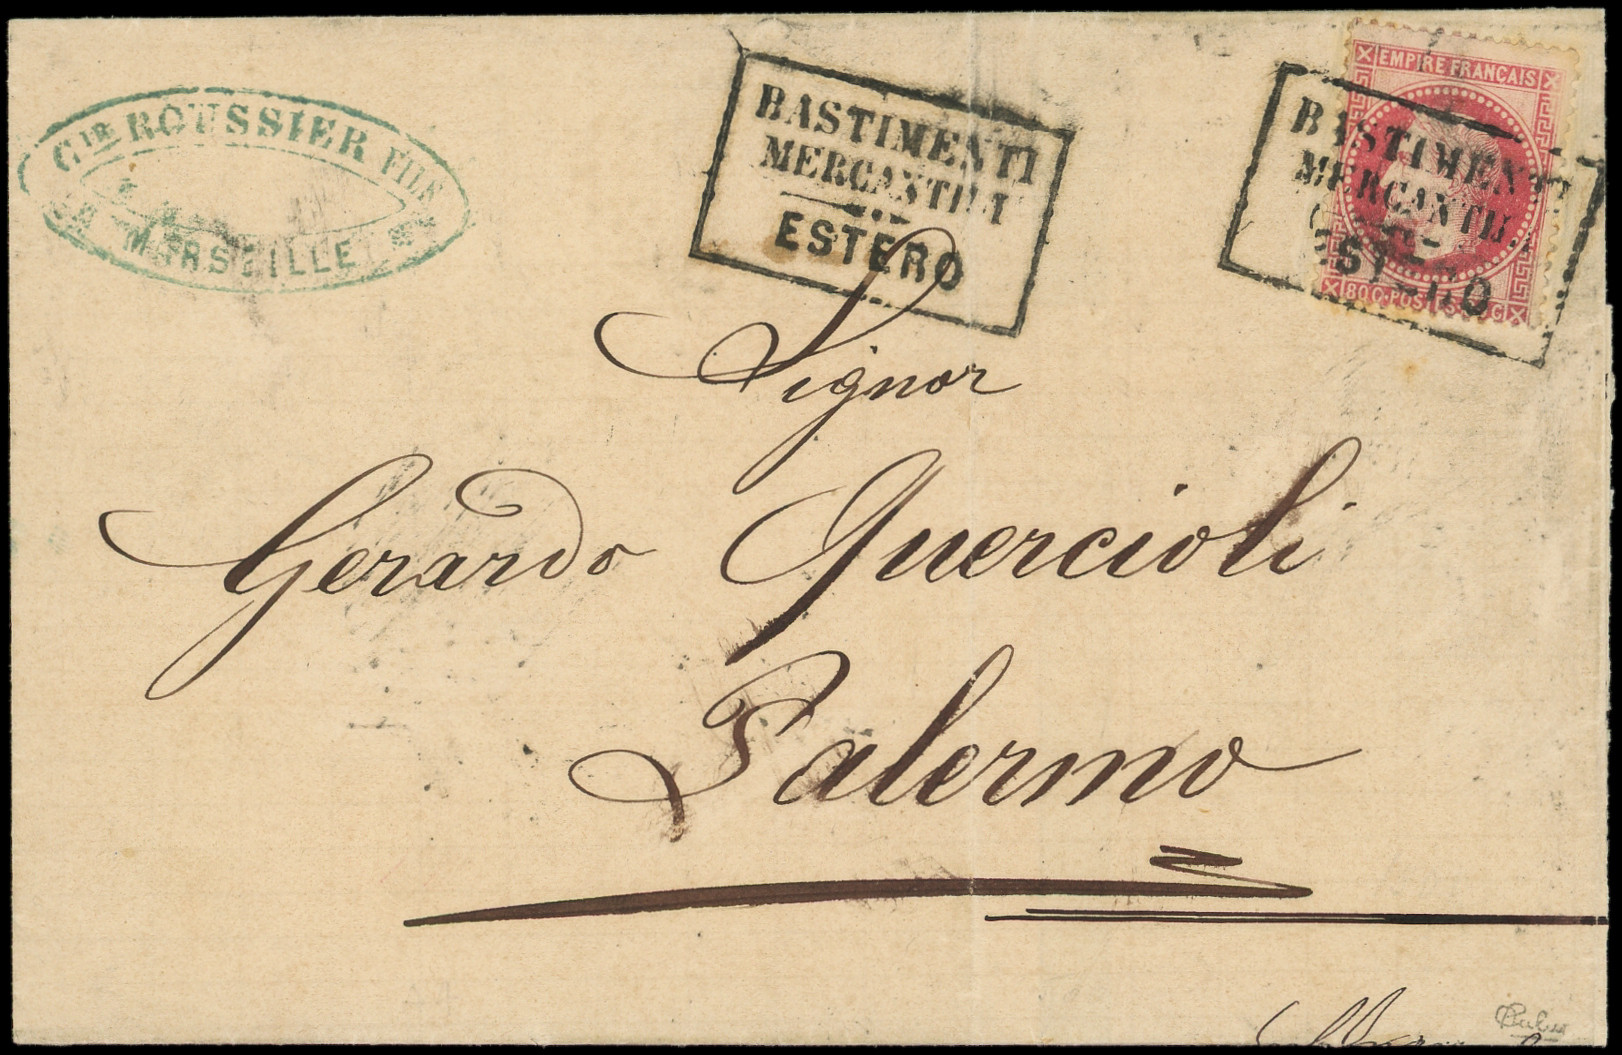 Cie ROUSSIER FILS
A MARSEILLE
BASTIMENTI
MERCANTILI
ESTERO
EMPIRE FRANCAIS
BASTIMENTI
MERCANTILI
ESTERO
80 C. POSTES 80 C
Signor
Gerardo Quercioli
Palermo